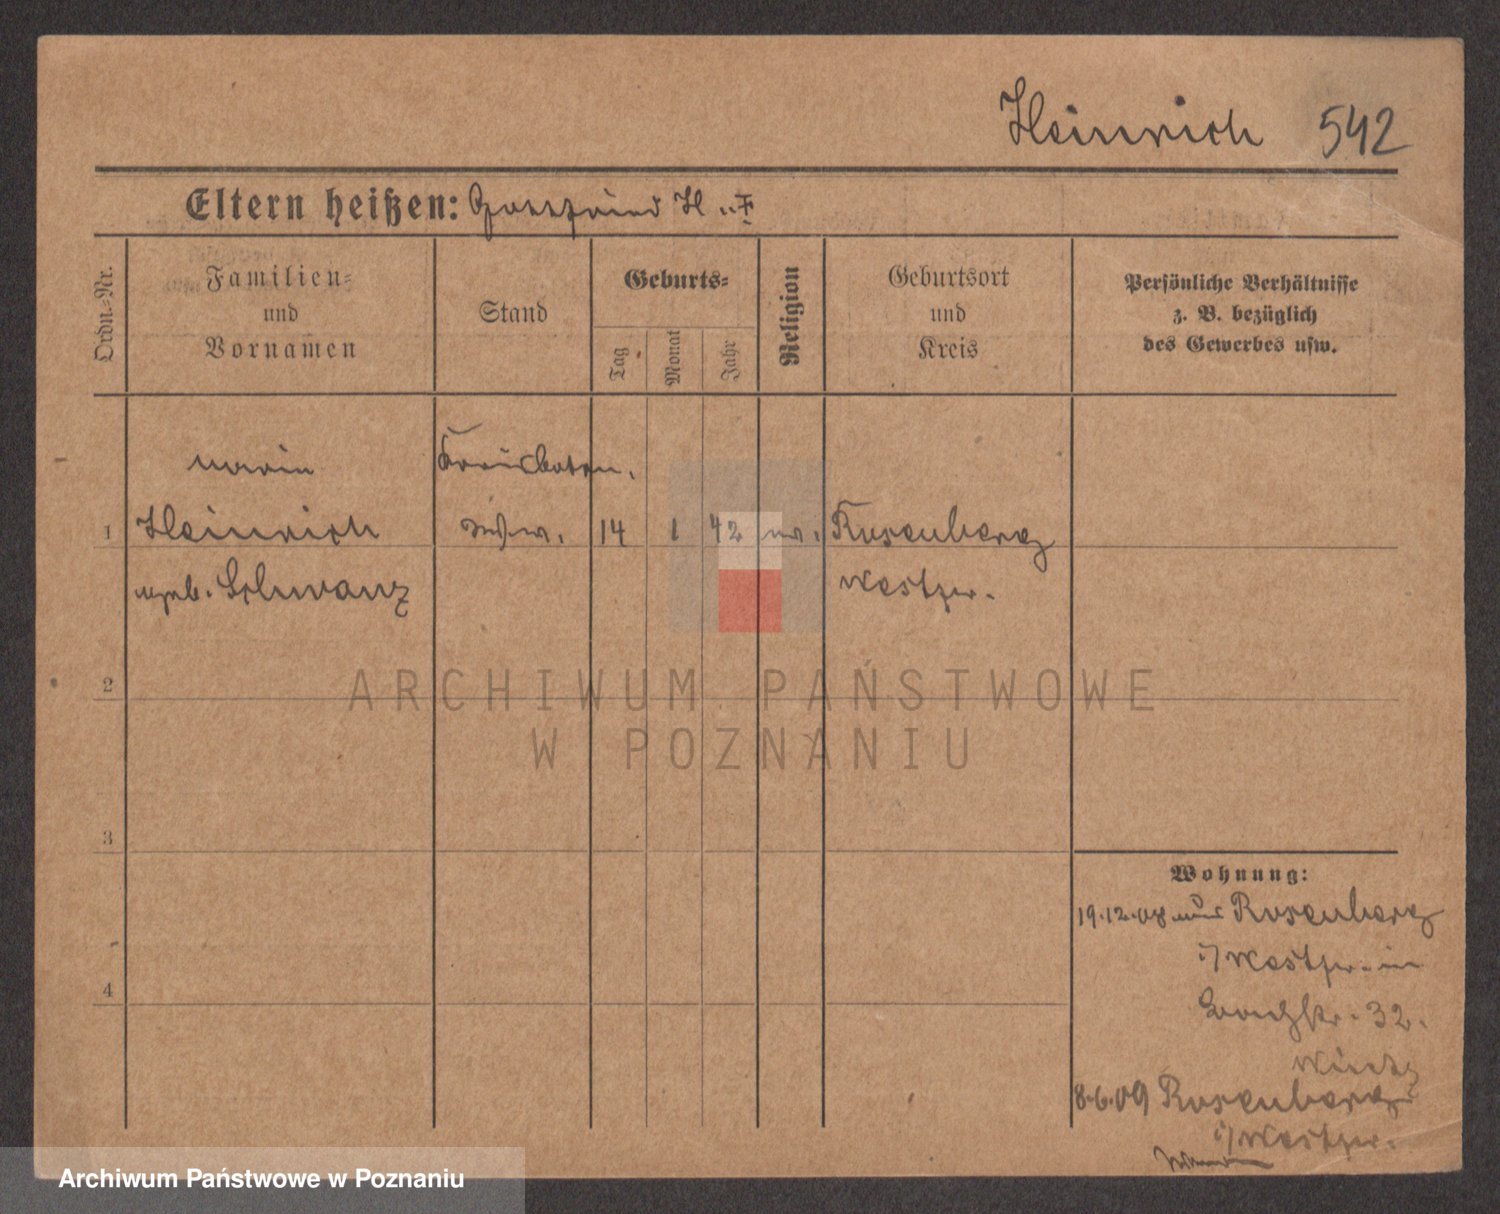 Heinrich 542
Eltern heißen: Gottfried H u. F
Ordn.-Nr.
Familien-
und
Vornamen
Stand
Geburts-
Tag
Monat
Jahr
Religion
Geburtsort
und
Kreis
Persönliche Verhältnisse
z. B. bezüglich
des Gewerbes usw.
Kreisboten
1 Heinrich 14 1 42 ev. Rosenberg
geb. Schwanz Westpr.
2
ARCHIWUM PAŃSTWOWE
W POZNANIU
3
Wohnung:
19.12.08 aus Rosenberg
i/Westpr. in
32.
4
8.6.09 Rosenberg
i/Westpr.
Archiwum Państwowe w Poznaniu